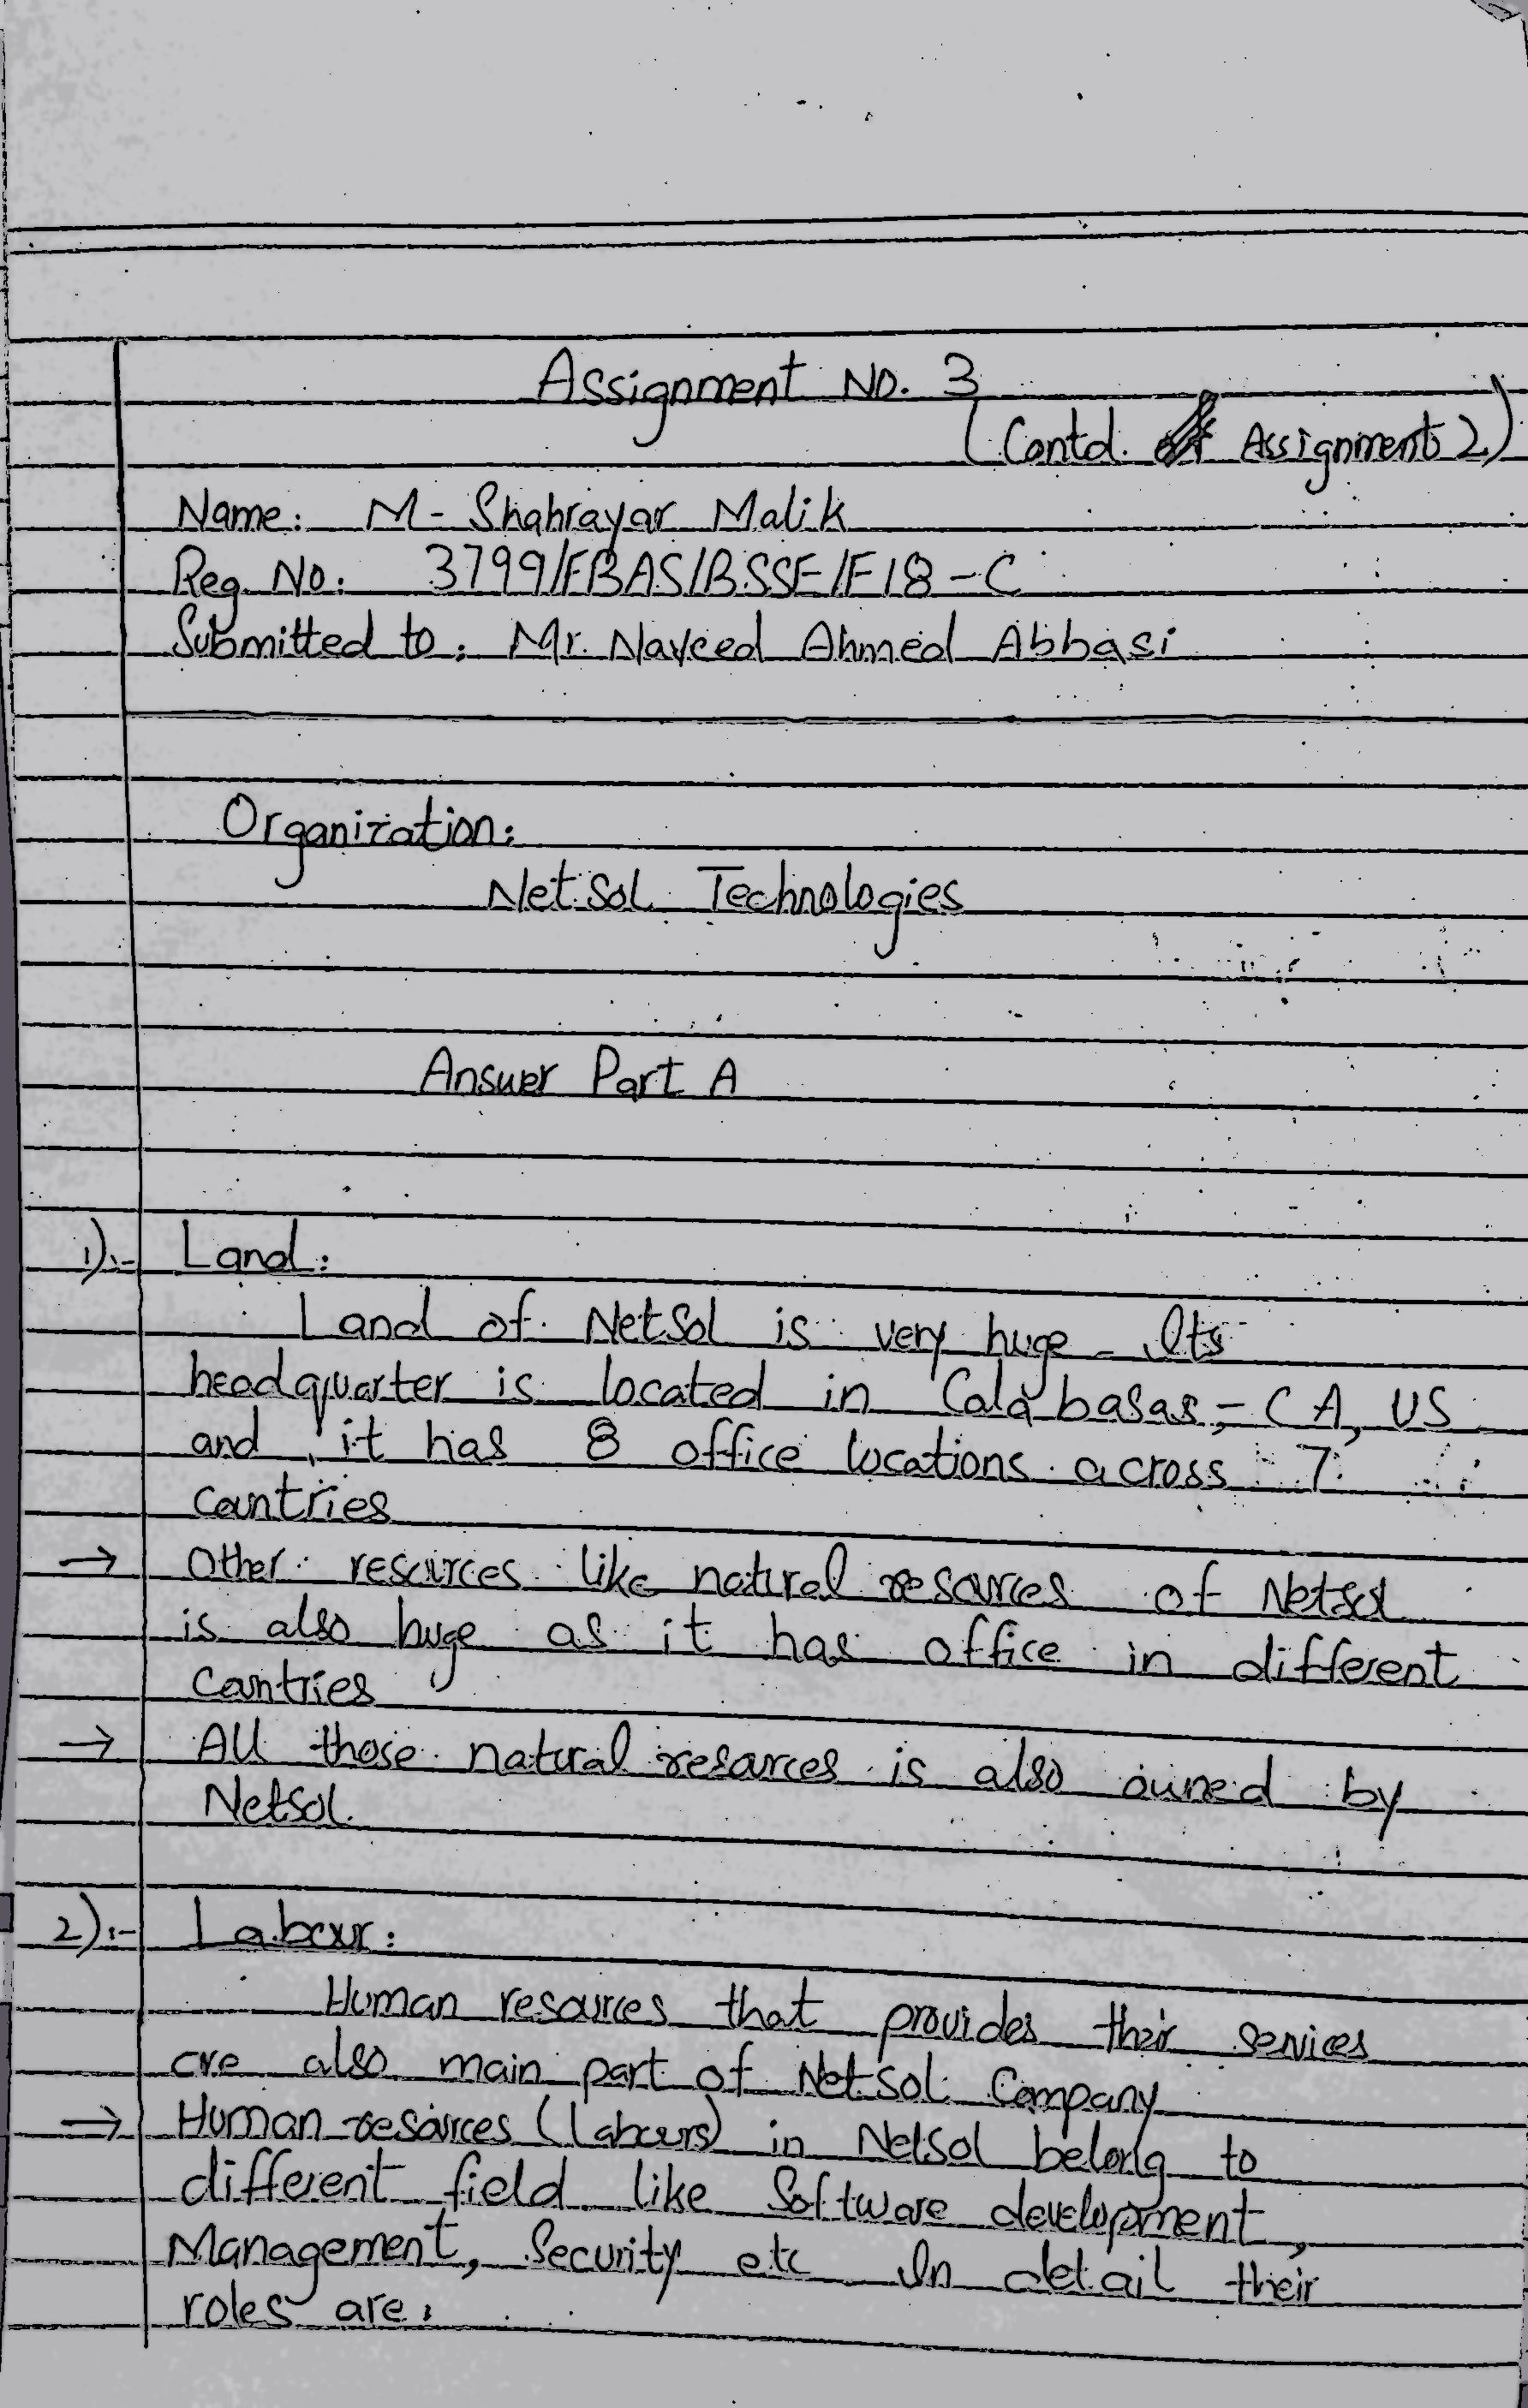 Assignment No. 3
(Contd. Assignment 2)
Name: M- Shahrayar Malik
Reg No: 3799/FBAS/BSSE/F18-C
Submitted to: Mr. Naveed Ahmed Abbasi
Organization:
NetSol Technologies
Answer Part A
1):- Land:
Land of NetSol is very huge. Its
headquarter is located in Calabasas, CA, US
and it has 8 office locations across 7
countries
→ Other resources like natural resources of Netsol
is also huge as it has office in different
countries
→ All those natural resources is also owned by
Netsol.
2):- Labour:
Human resources that provides their services
are also main part of NetSol Company
→ Human resources (labours) in Netsol belong to
different field like Software development,
Management, Security etc In detail their
roles are: